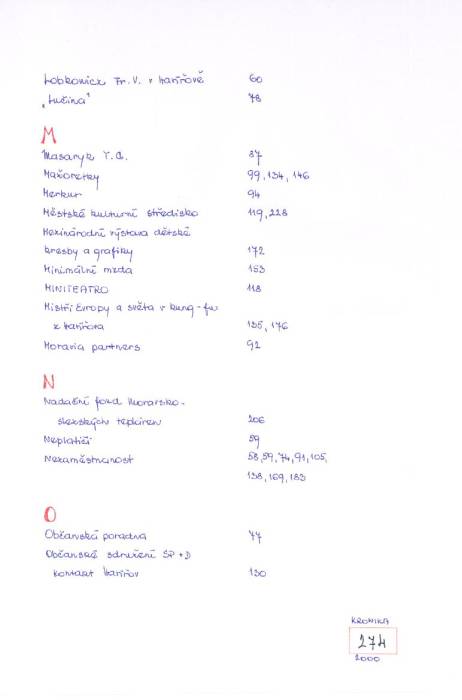 Lobkowicz Fr. V. v Havířově 60
„Lučina" 78
M
Masaryk T.G. 37
Mažoretky 99, 134, 146
Merkur 94
Městské kulturní středisko 119, 228
Mezinárodní výstava dětské
kresby a grafiky 172
Minimální mzda 153
MINITEATRO 118
Mistři Evropy a světa v kung-fu
z Havířova 135, 176
Moravia partners 92
N
Nadační fond Moravsko-
slezských tepláren 206
Neplatiči 59
Nezaměstnanost 58, 59, 74, 91, 105,
138, 169, 183
O
Občanská poradna 77
Občanské sdružení SP+D
kontakt Havířov 130
KRONIKA
274
2000